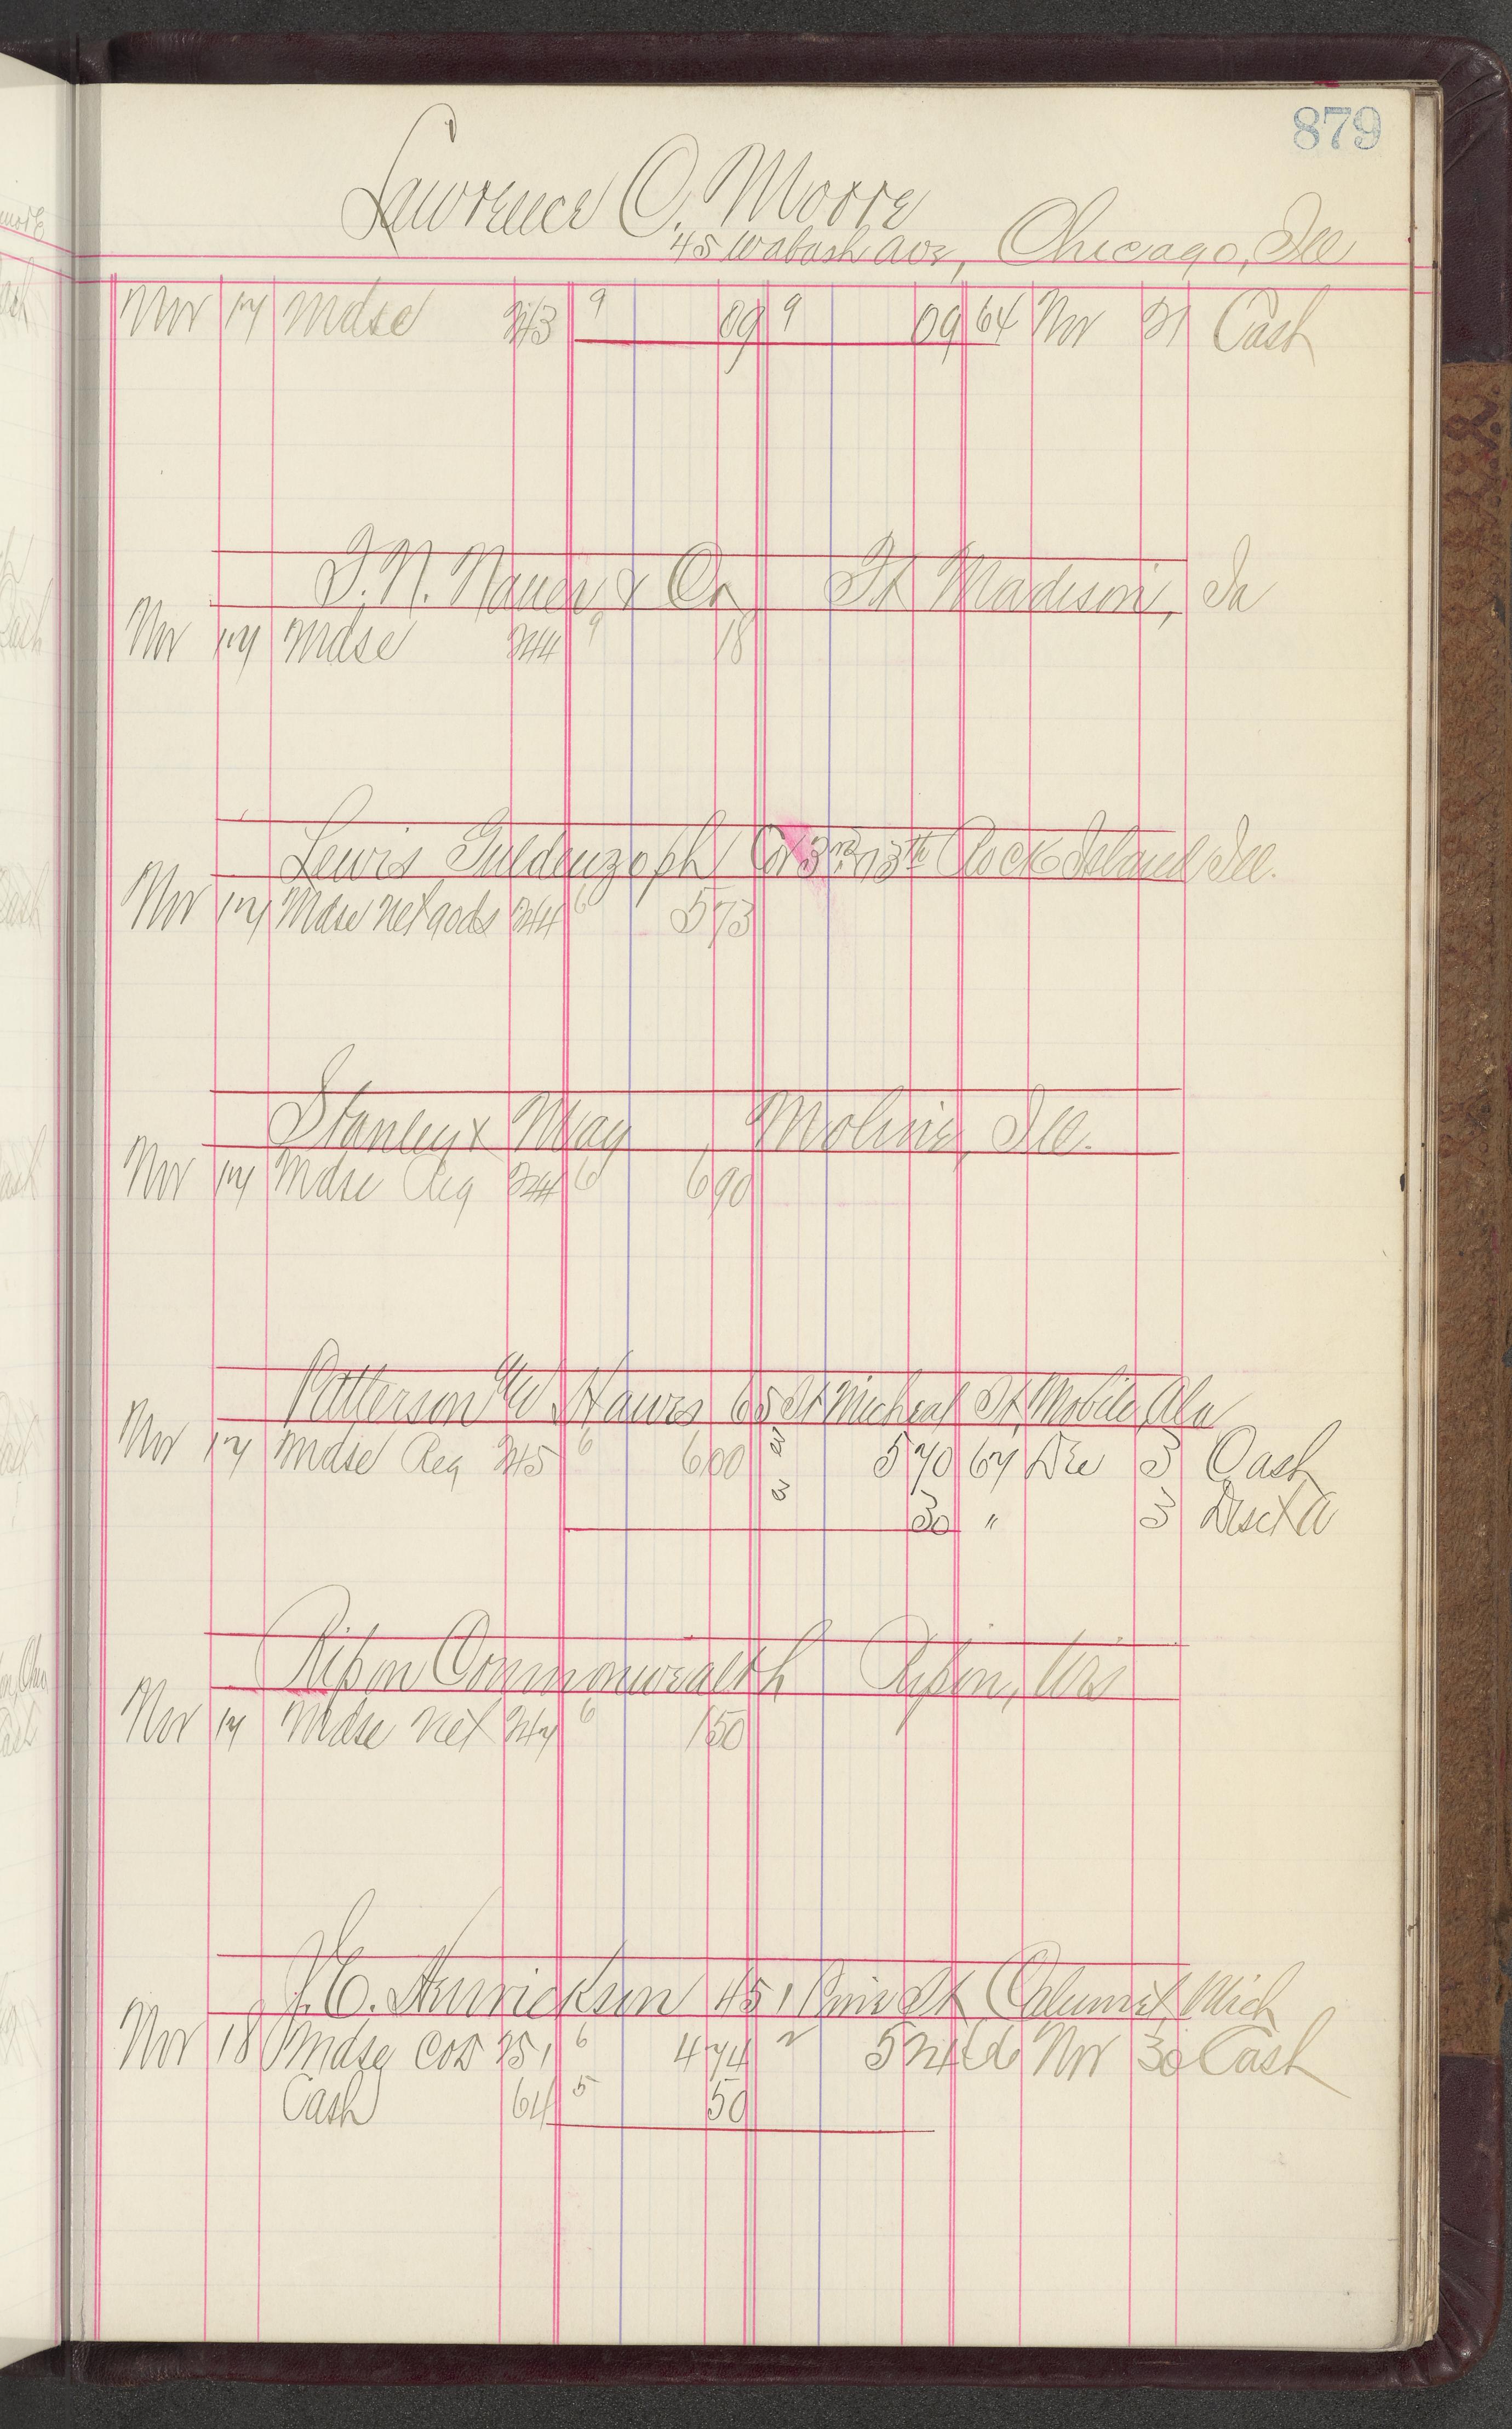 879
Lawrence C. Moore
45 Wabash Ave, Chicago, Ill
Nov 17 Mdse 243 9 09 9 09 64 Nov 21 Cash
& Co Ft Madison, Ia
Nov 17 Mdse 244 9 18
Lewis Guldenzoph Cor 3rd & 13th Rock Island Ill.
Nov 17 Mdse Net goods 244 6 5 73
Stanley & May, Moline, Ill.
Nov 17 Mdse Reg 244 6 6 90
Patterson & Hawes 65 St Micheal St, Mobile, Ala
Nov 17 Mdse Reg 245 6 6 00 3 5 70 67 Dec 3 Cash
3 30 " 3 Disct
Ripon Commonwealth Ripon, Wis
Nov 17 Mdse Net 247 6 1 50
J. C. Henrickson 451 Pine St Calumet, Mich
Nov 18 Mdse 251 6 4 74 2 5 24 Nov 30 Cash
Cash 64 5 50